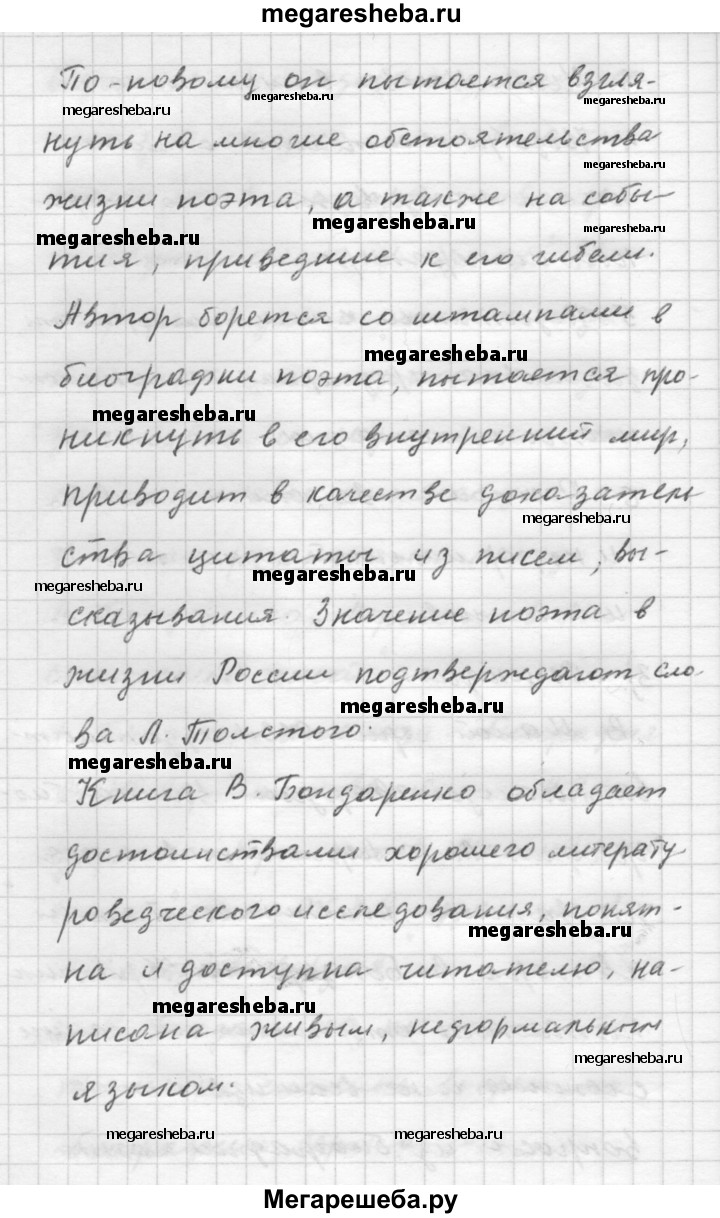 megaresheba.ru
По-новому он пытается взгля-
megaresheba.ru
megaresheba.ru
нуть на многие обстоятельства
megaresheba.ru
жизни поэта, а также на собы-
megaresheba.ru
megaresheba.ru
тия, приведшие к его гибели.
Автор борется со штампами в
megaresheba.ru
биографии поэта, пытается про-
megaresheba.ru
никнуть в его внутренний мир,
приводит в качестве доказатель
megaresheba.ru
ства цитаты из писем, вы-
megaresheba.ru
megaresheba.ru
сказывания. Значение поэта в
жизни России подтверждают сло
megaresheba.ru
ва Л. Толстого.
megaresheba.ru
Книга В. Бондаренко обладает
достоинствами хорошего литерату
роведческого исследования, понят-
megaresheba.ru
на и доступна читателю, на-
megaresheba.ru
писана живым, неформальным
megaresheba.ru
языком.
megaresheba.ru
megaresheba.ru
Мегарешеба.ру